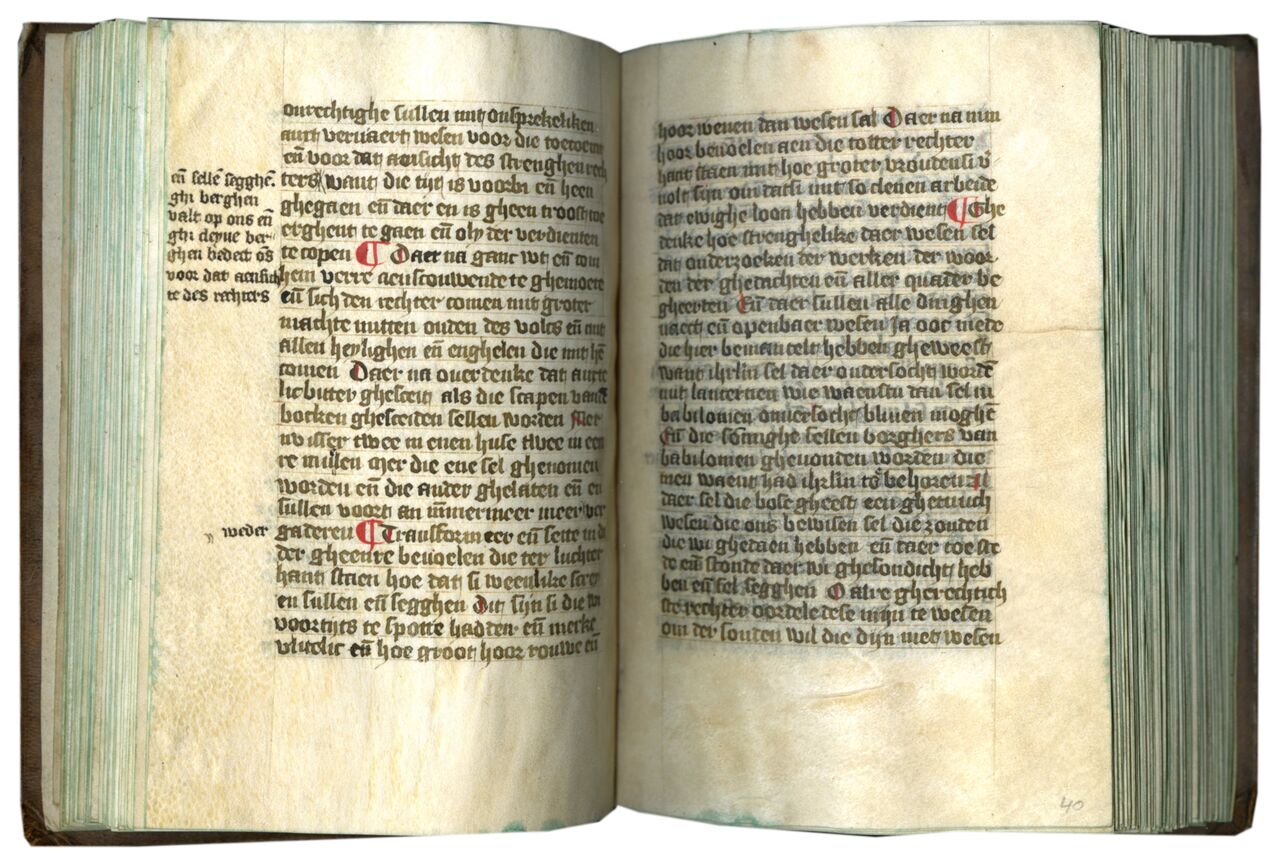 onrechtighe sullen mit onsprekeliken
anxt vervaert wesen voor die toecoemst
en̄ voor dat aensicht des strenghen rech
ters want die tijt is voorbi en̄ heen
ghegaen en̄ daer en is gheen troost toe
erghent te gaen en̄ oly der verdienten
te copen ¶ Daer na ganc wt en̄ com
hem verre aenscouwende te ghemoete
en̄ sich den rechter comen mit groter
machte mitten ouden des volcs en̄ mit
allen heylighen en̄ enghelen die mit hē
comen Daer na overdenke dat anxte
lic bitter ghesceit als die scapen vandē
bocken ghesceiden sellen worden Mer
nv isser twee in enen huse twee in een
re mūlen mer die ene sel ghenomen
worden en̄ die ander ghelaten en̄ en
sullen voort an ūmermeer meer ver
gaderen ¶ Transformeer en̄ sette in di
der gheenre bevoelen die ter luchter
hant staen hoe dat si weenlike screy
en sullen en̄ segghen Dit sijn si die wi
voortijts te spotte hadden en̄ merke
vlitelic en̄ hoe groot hoor rouwe en̄
en̄ sellē segghē.
ghi berghen
valt op ons en̄
ghi cleyne ber
ghen bedect ōs
voor dat aensich
te des rechters
weder
hoor wenen dan wesen sal Daer na nim
hoor bevoelen aen die totter rechter
hant staen mit hoe groter vrouden si v
volt sijn om datsi mit so clenen arbeide
dat ewighe loon hebben verdient ¶ Ghe
denke hoe strenghelike daer wesen sel
dat onderzoeken der werken der woor
den der ghedachten en̄ aller quader be
gheerten En̄ daer sullen alle dinghen
naect en̄ openbaer wesen Ja ooc mede
die hier bemantelt hebben gheweest
want ihrlm sel daer ondersocht wordē
mit lanternen wie waenstu dan sel in
babilonien onversocht bliven moghē
En̄ die sōmighe sellen borghers van
babilonien ghevonden worden die
men waent had ihrlm toe behoren Al
daer sel die bose gheest een ghetuuch
wesen die ons bewisen sel die zonden
die wi ghedaen hebben en̄ daer toe ste
de en̄ stonde daer wi ghesondicht heb
ben en̄ sel segghen O alre gherechtich
ste rechter oordele dese mijn te wesen
om der sonden wil die dijn niet wesen
40